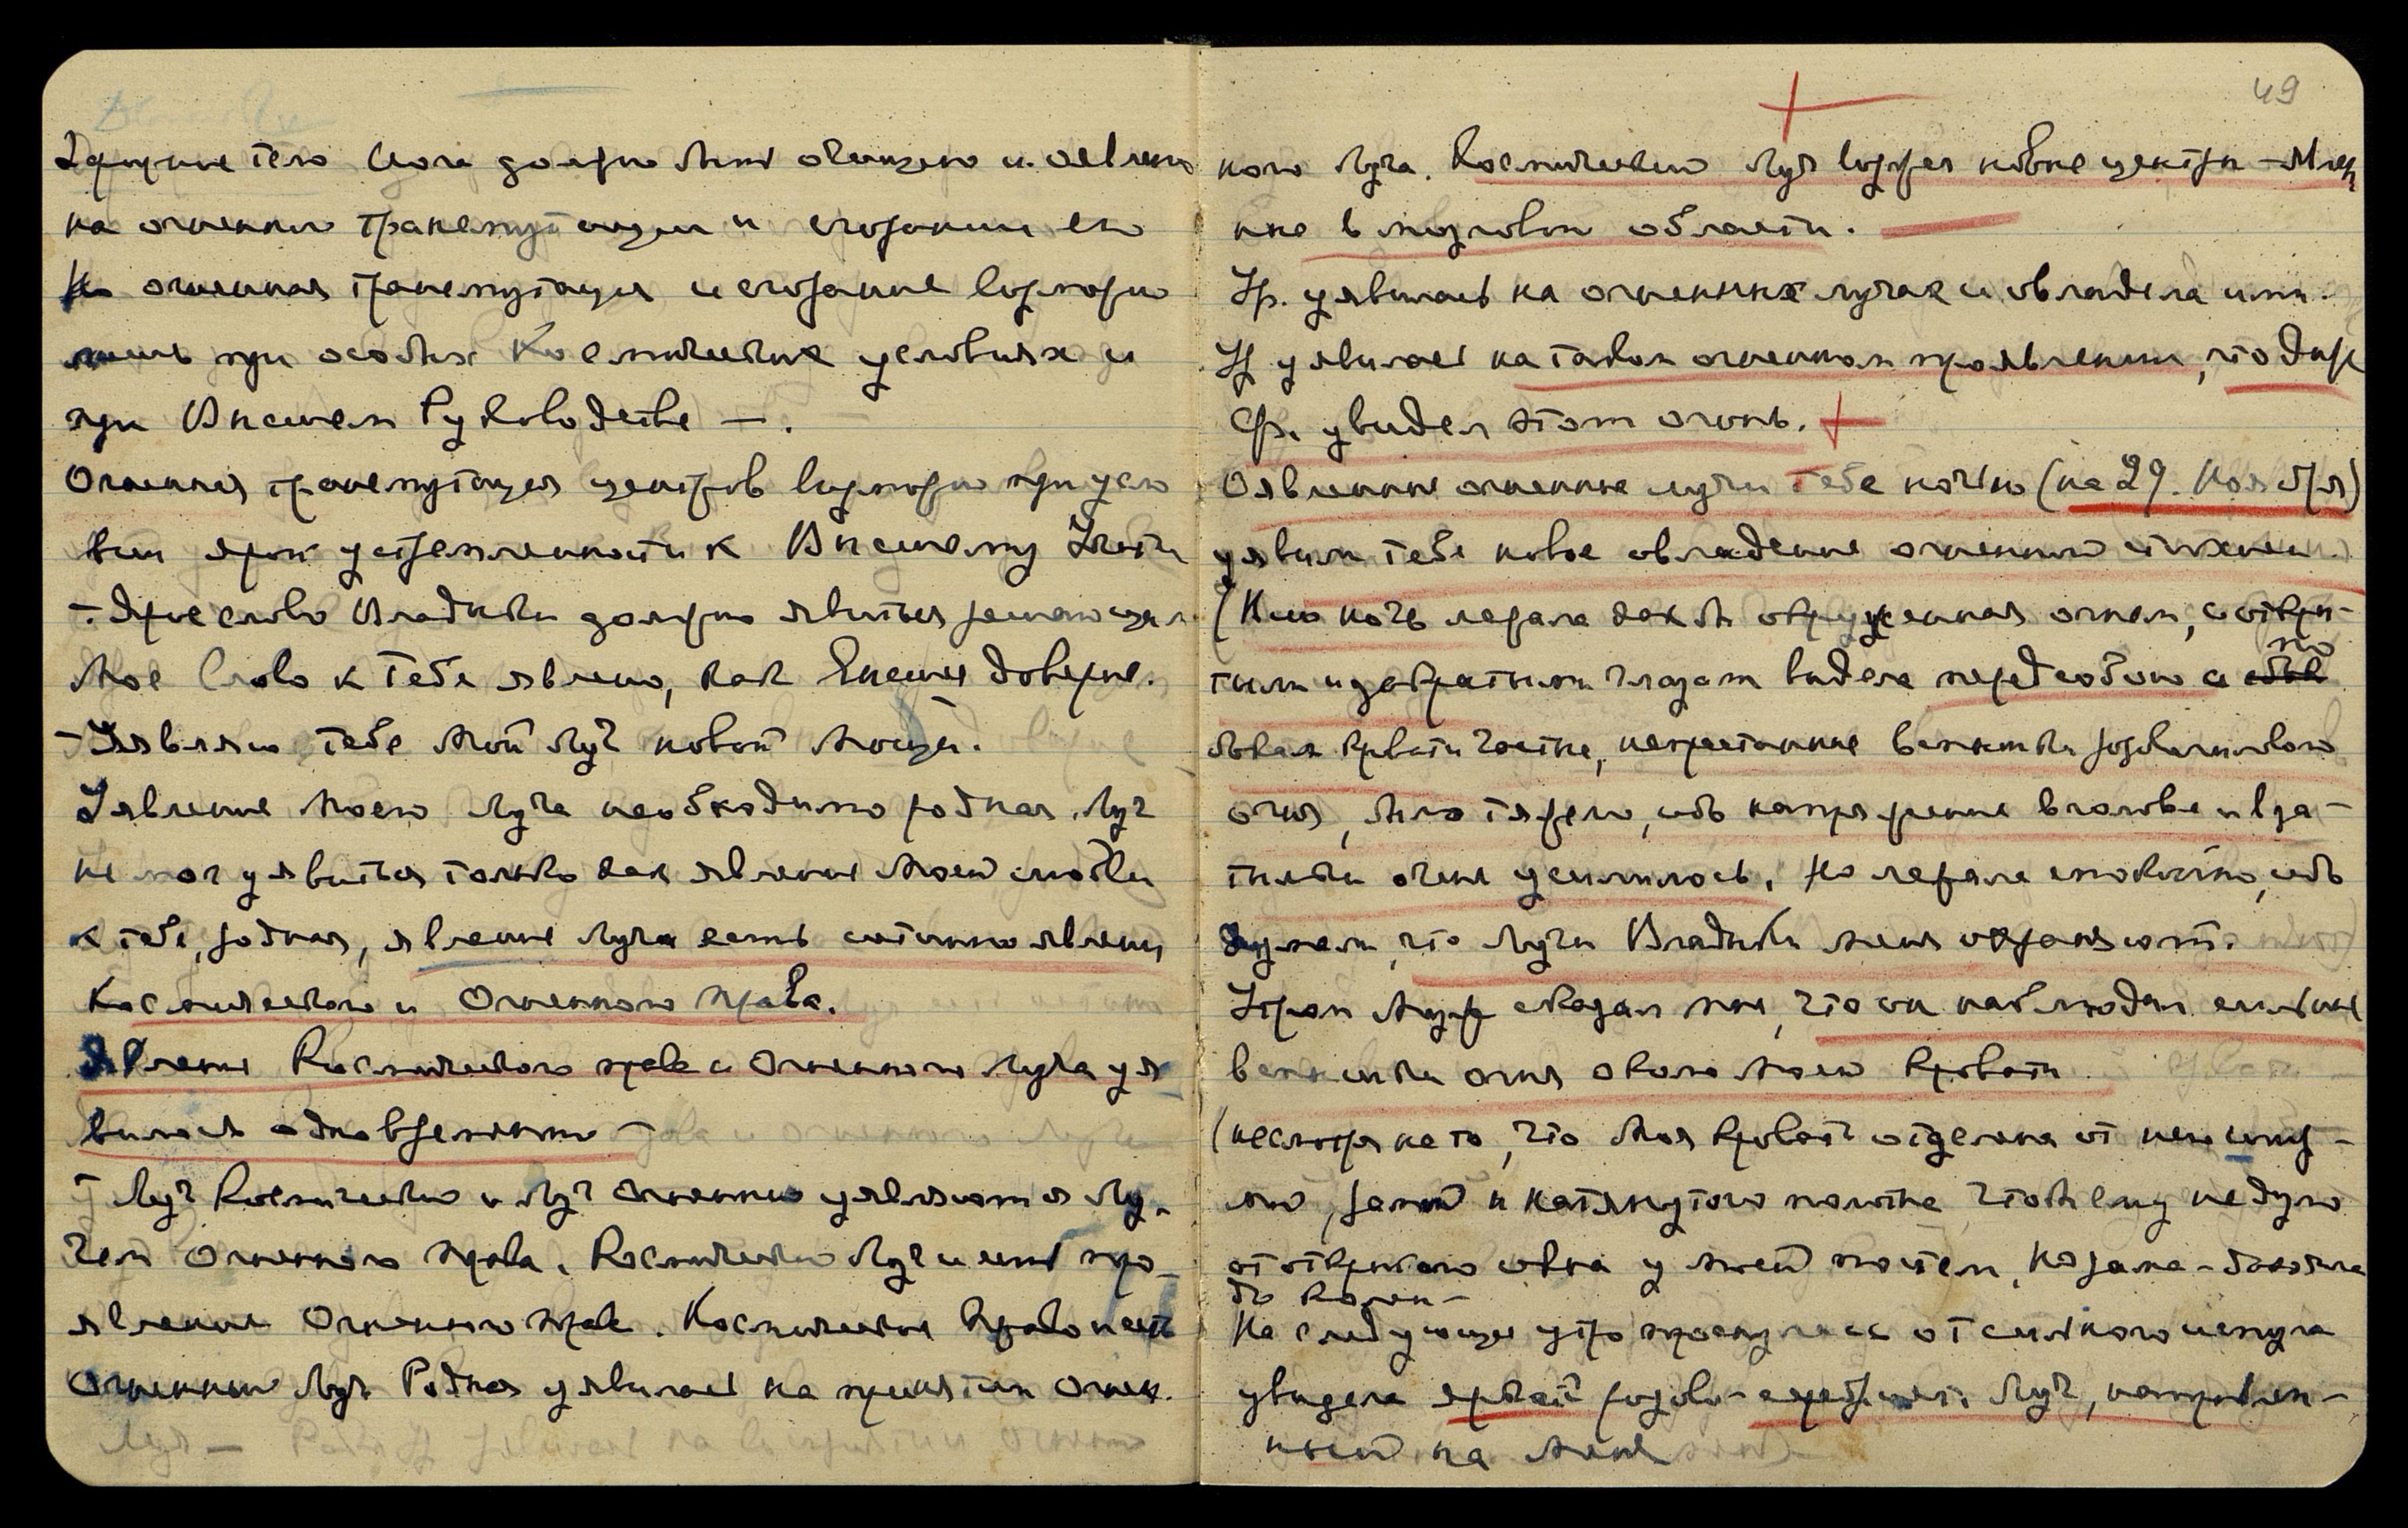 тело Йога должно быть очищено и явлено
на огненной трансмутации и сгорании его
Но огненная трансмутация и сгорание возможно
лишь при особых Космических условиях и
при Высшем Руководстве —.
Огненная трансмутация центров возможно при усло
вии ярой устремленности к Высшему
— Ярое слово Владыки должно явиться решающим
Мое Слово к Тебе явлено, как Высшее доверие.
— Уявляю тебе Мой Луч новой Мощи.
Уявление Моего Луча необходимо родная, Луч
не мог уявиться только как явление Моей любви
к тебе, родная, явление Луча есть истинно явление
Космического и Огненного Права.
Явление Космического права и Огненного Луча уя
вилось одновременно —
Луч Космический и Луч Огненный уявляются Лу-
чем Огненного Права. Космический Луч и есть про-
явление Огненного Права. Космическое Право и есть
Огненный Луч Родная уявилась на принятии Огнен.
49
ного Луча. Космический Луч новые центры —
ные в мозговой области.
Ур. уявилась на огненных лучах и овладела ими.
Ур уявилась на таком огненном проявлении, что даже
увидел этот огонь.
Оявленные огненные лучи Тебе ночью (на 29. Ноября)
уявили тебе новое овладение огненной стихией.
(Всю ночь лежала как бы окруженная огнем, с откры-
тыми и закрытыми глазами видела перед собою и по
бокам кровати частые, непрестанные вспышки розово-лилового
огня, было тяжело, ибо напряжение в голове и в за-
тылке очень усилилось. Но лежала спокойно, ибо
думала, что Лучи Владыки меня охраняют.
Утром сказал мне, что он наблюдал сильные
вспышки огня около моей кровати
(несмотря на то, что Моя кровать отделена от него
рамой и натянутого полотна чтобы ему не дуло
от открытого окна у моей постели, но рама
до колен —
На следующее утро проснулась от сильного испуга
увидела яркий розово-серебряный Луч, направлен-
ный на меня